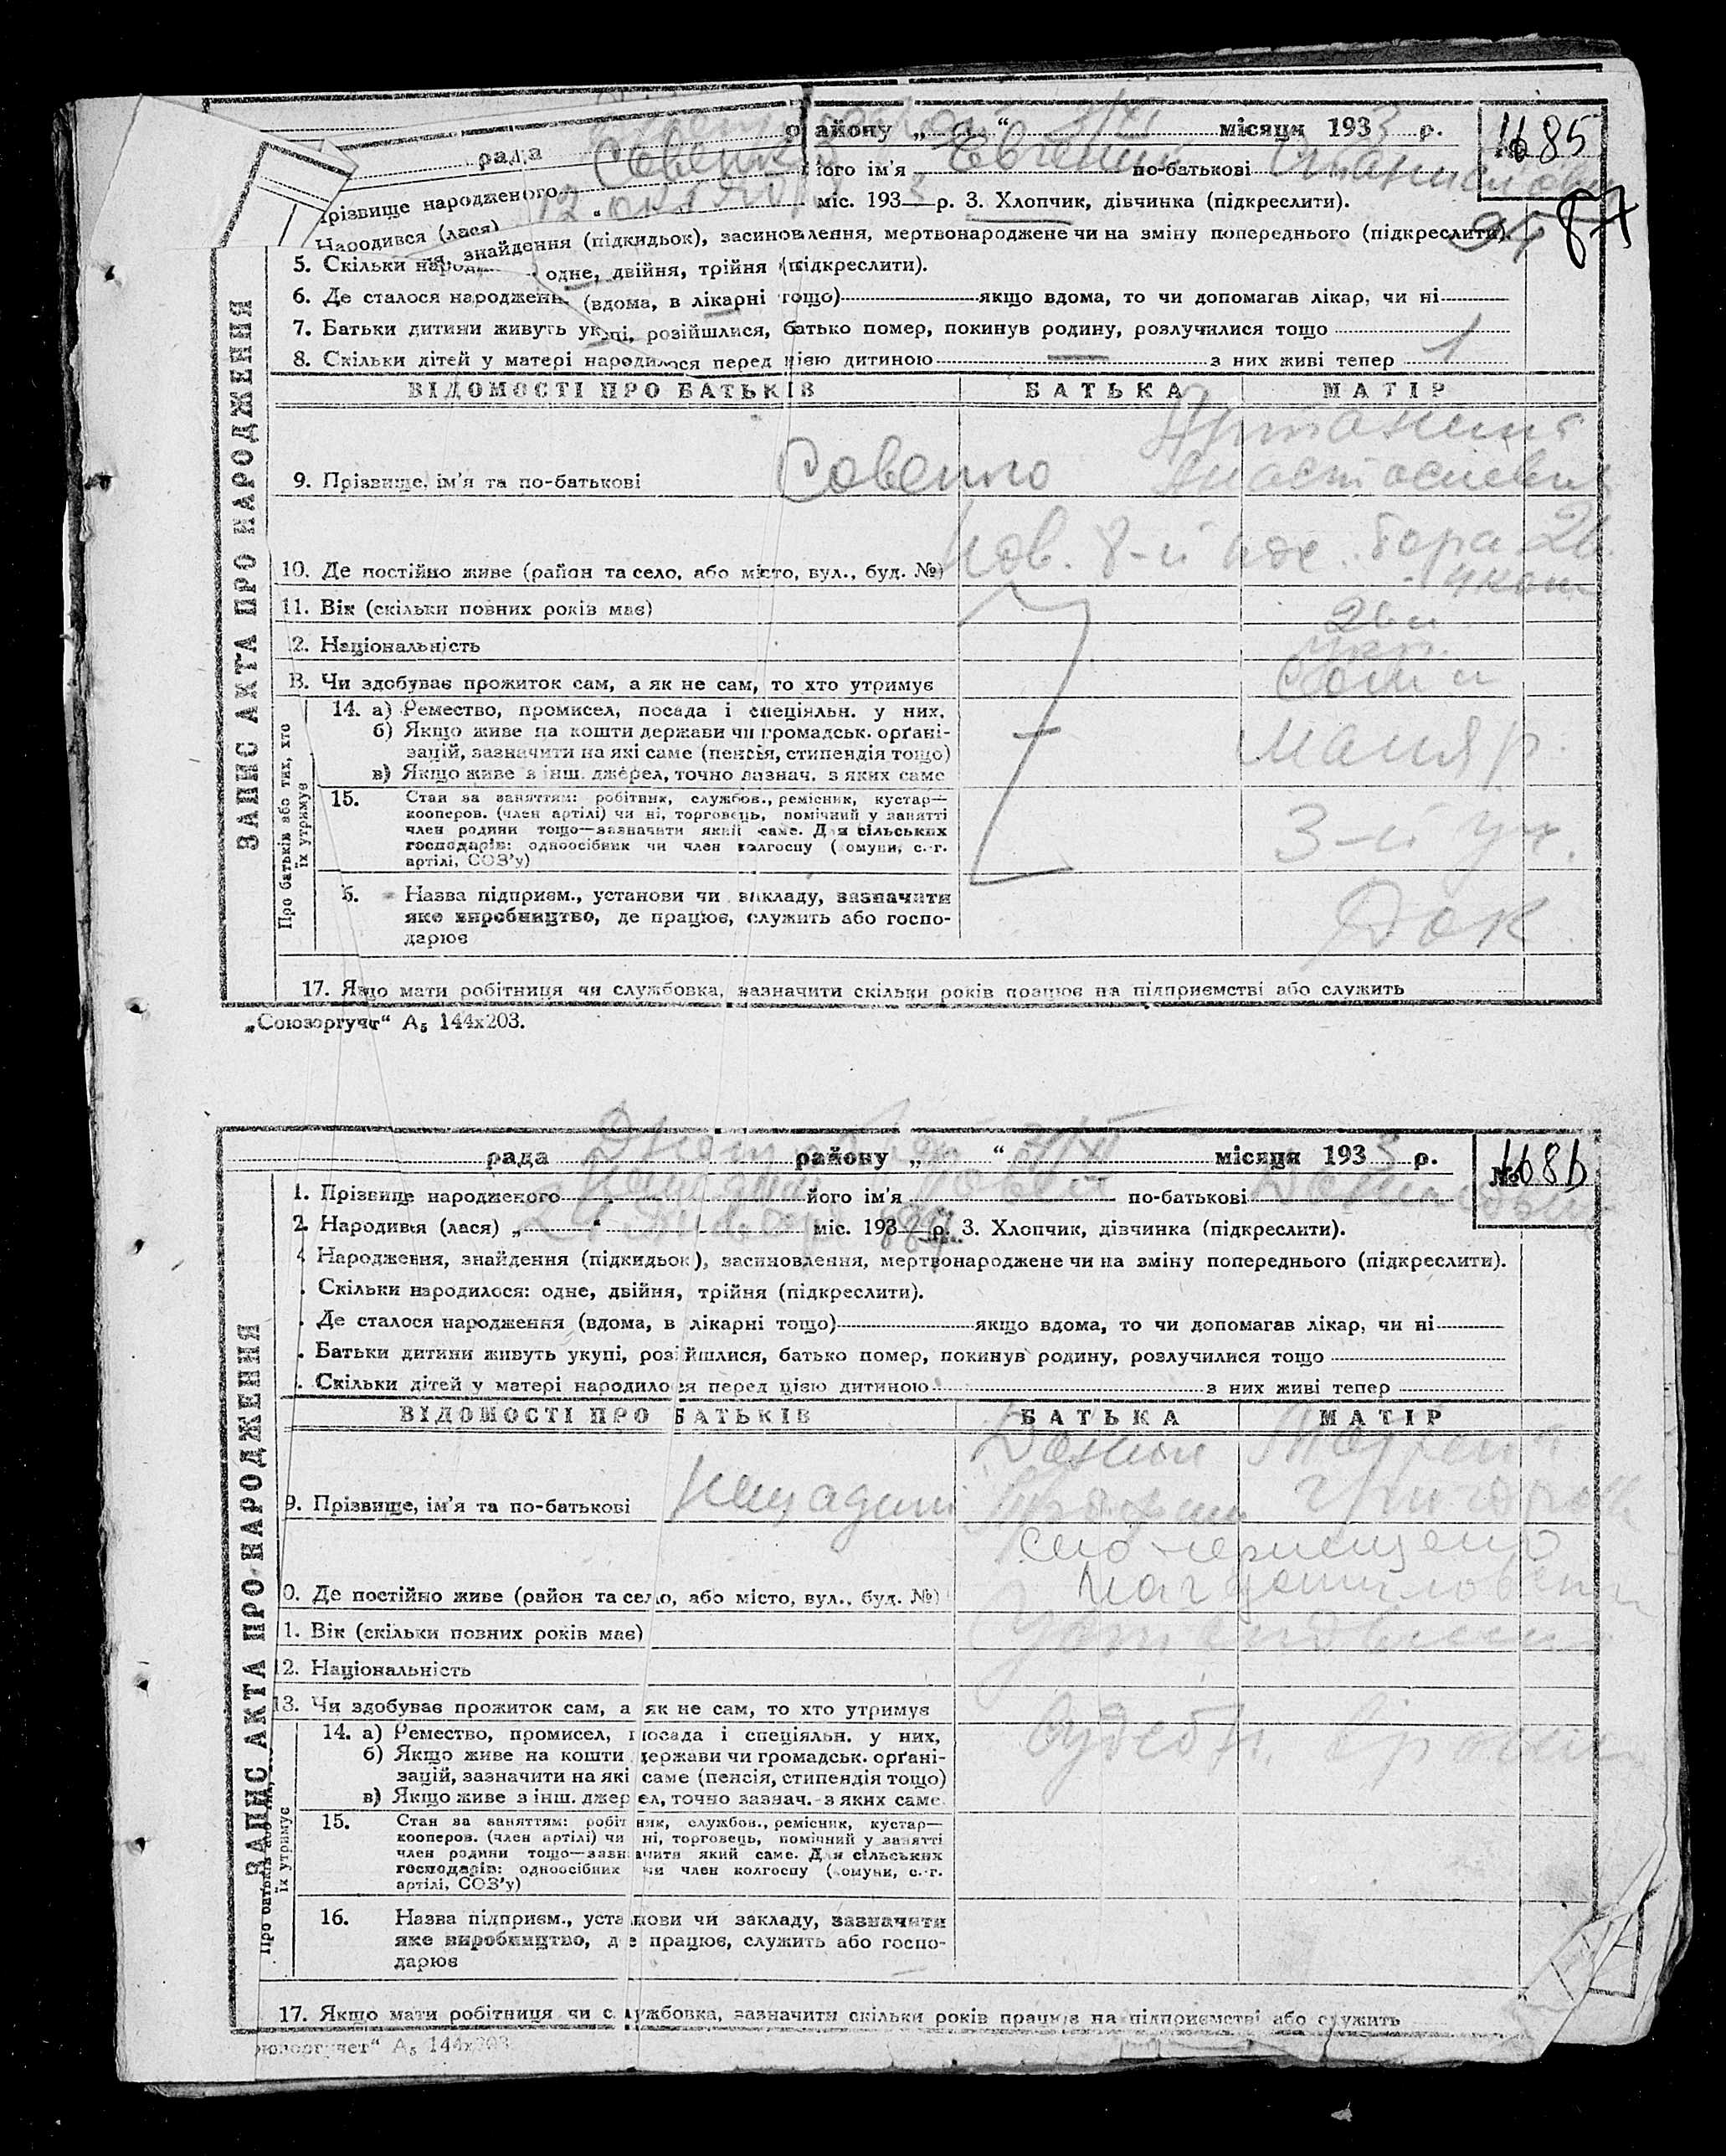 району „ 3/XI “ місяця 1933 р. № 1685
рада
Прізвище народженого Савенко його ім'я Евгений по-батькові
Народився (лася) 12 октября міс. 1933 р. 3. Хлопчик, дівчинка (підкреслити).
знайдення (підкидьок), засиновлення, мертвонароджене чи на зміну попереднього (підкреслити).
94 87
5. Скільки одне, двійня, трійня (підкреслити).
6. Де сталося народження (вдома, в лікарні тощо) якщо вдома, то чи допомагав лікар, чи ні
7. Батьки дитини живуть укупі, розійшлися, батько помер, покинув родину, розлучилися тощо
8. Скільки дітей у матері народилося перед цією дитиною — з них живі тепер 1
ВІДОМОСТІ ПРО БАТЬКІВ БАТЬКА МАТІР
9. Прізвище, ім'я та по-батькові Савенко
10. Де постійно живе (район та село, або місто, вул., буд. №) 8-й пос.
11. Вік (скільки повних років має)
2. Національність укр.
В. Чи здобуває прожиток сам, а як не сам, то хто утримує сама
14. а) Ремество, промисел, посада і спеціяльн. у них,
б) Якщо живе на кошти держави чи громадськ. орґані-
зацій, зазначити на які саме (пенсія, стипендія тощо)
в) Якщо живе з інш. джерел, точно зазнач. з яких саме
маляр
15. Стан за заняттям: робітник, службов., ремісник, кустар—
кооперов. (член артілі) чи ні, торговець, помічний у занятті
член родини тощо—зазначити який саме. Для сільських
господарів: одноосібник чи член колгоспу (комуни, с.-г.
артілі, СОЗ'у)
3-й уч.
6. Назва підприєм., установи чи закладу, зазначити
яке виробництво, де працює, служить або госпо-
дарює
Док
17. Якщо мати робітниця чи службовка, зазначити скільки років працює на підприємстві або служить
Про батьків або тих, хто
їх утримує
ЗАПИС АКТА ПРО НАРОДЖЕННЯ
„Союзоргучет“ А5 144х203.
рада району „ 3/XI “ місяця 1933 р. № 1686
1. Прізвище народженого його ім'я по-батькові
2. Народився (лася) „ 24 “ міс. 193 р. 3. Хлопчик, дівчинка (підкреслити).
4 Народження, знайдення (підкидьок), засиновлення, мертвонароджене чи на зміну попереднього (підкреслити).
. Скільки народилося: одне, двійня, трійня (підкреслити).
. Де сталося народження (вдома, в лікарні тощо) якщо вдома, то чи допомагав лікар, чи ні
. Батьки дитини живуть укупі, розійшлися, батько помер, покинув родину, розлучилися тощо
. Скільки дітей у матері народилося перед цією дитиною з них живі тепер
ВІДОМОСТІ ПРО БАТЬКІВ БАТЬКА МАТІР
9. Прізвище, ім'я та по-батькові
0. Де постійно живе (район та село, або місто, вул., буд. №)
1. Вік (скільки повних років має)
12. Національність
13. Чи здобуває прожиток сам, а як не сам, то хто утримує
14. а) Ремество, промисел, посада і спеціяльн. у них,
б) Якщо живе на кошти держави чи громадськ. орґані-
зацій, зазначити на які саме (пенсія, стипендія тощо)
в) Якщо живе з інш. джерел, точно зазнач. з яких саме
15. Стан за заняттям: робітник, службов., ремісник, кустар—
кооперов. (член артілі) чи ні, торговець, помічний у занятті
член родини тощо—зазначити який саме. Для сільських
господарів: одноосібник чи член колгоспу (комуни, с.-г.
артілі, СОЗ'у)
16. Назва підприєм., установи чи закладу, зазначити
яке виробництво, де працює, служить або госпо-
дарює
17. Якщо мати робітниця чи службовка, зазначити скільки років працює на підприємстві або служить
їх утримує
ЗАПИС АКТА ПРО НАРОДЖЕННЯ
А5 144х203